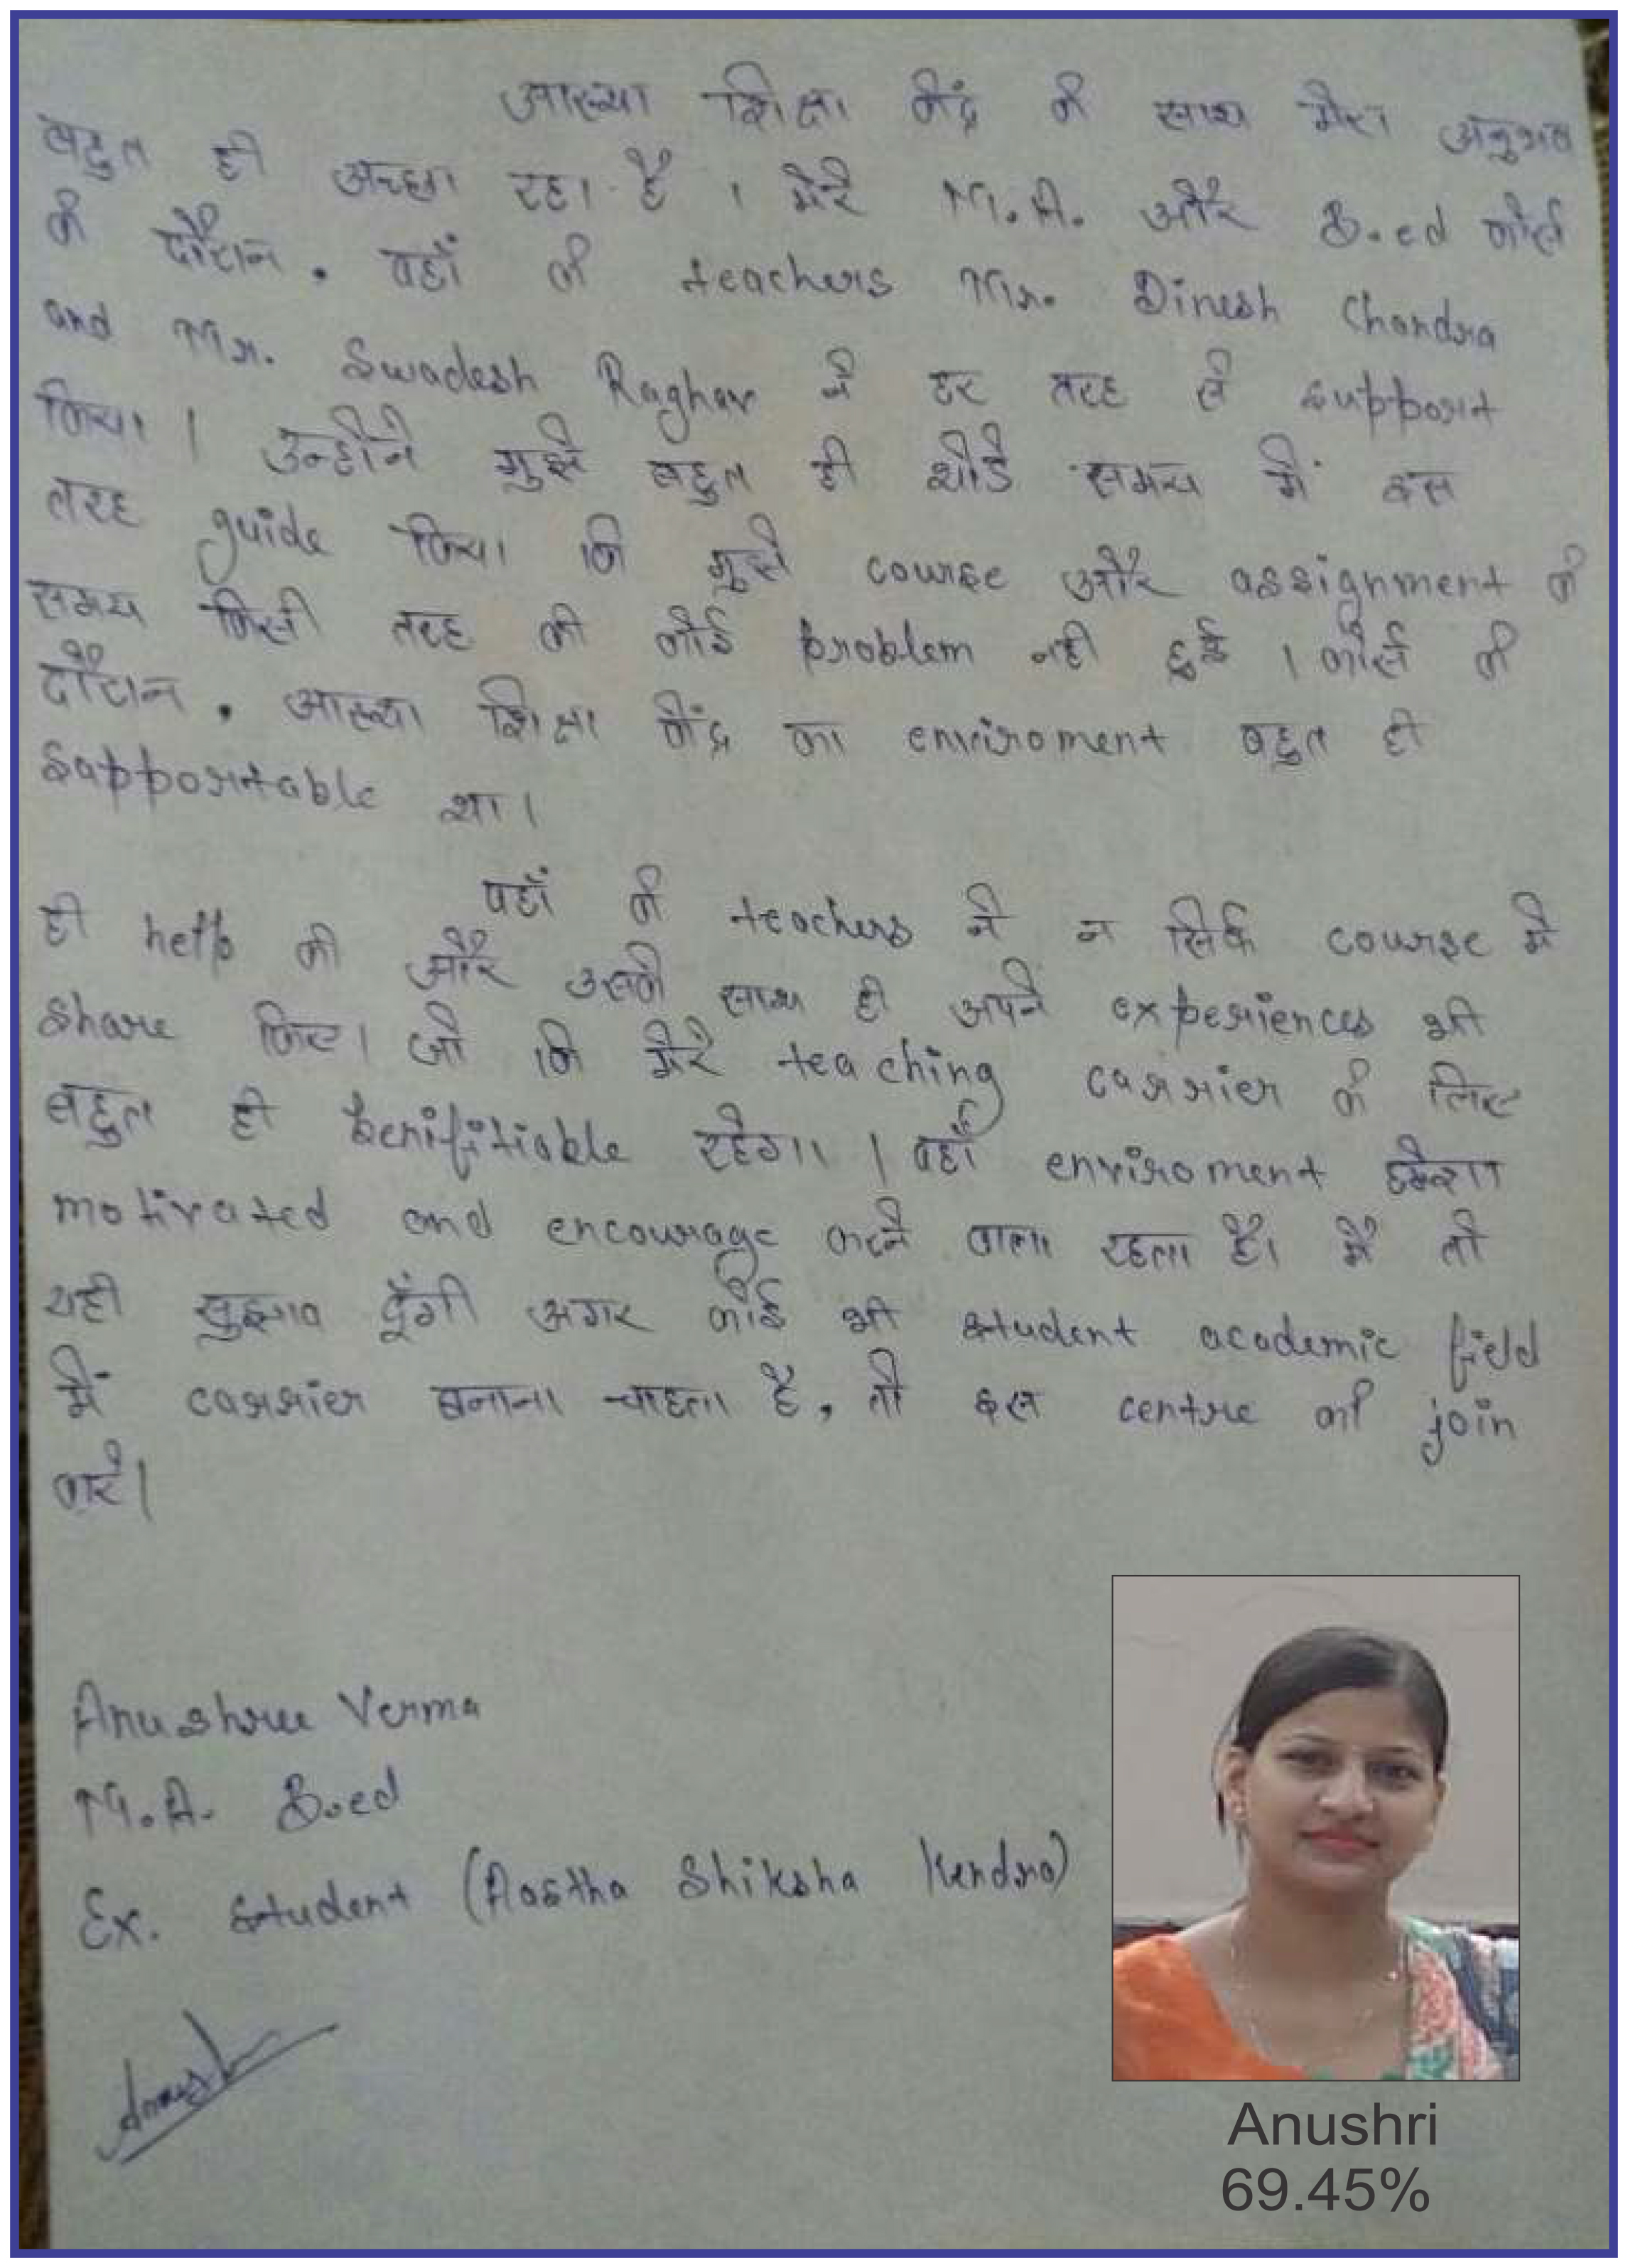 आस्था शिक्षा केंद्र के साथ मेरा अनुभव
बहुत ही अच्छा रहा है । मेरे M.A. और B.ed कोर्स
के दौरान , वहाँ के teachers Mr. Dinesh Chandra
and Mr. Swadesh Raghav ने हर तरह से support
किया । उन्होंने मुझे बहुत ही थोडे समय में इस
तरह guide किया कि मुझे course और assignment के
समय किसी तरह की कोई problem नही हुई । कोर्स के
दौरान , आस्था शिक्षा केंद्र का enviroment बहुत ही
supportable था।
वहाँ के teachers ने न सिर्फ course मे
ही help की और उसके साथ ही अपने experiences भी
share किए। जो कि मेरे teaching carrier के लिए
बहुत ही benifitiable रहेगा । वहाँ enviroment हमेशा
motivated and encourage करने वाला रहता है। मै तो
यही सुझाव दूँगी अगर कोई भी student academic field
में carrier बनाना चाहता है, तो इस centre को join
करे।
Anushree Verma
M.A. B.ed
Ex. student (Aastha Shiksha Kendra)
Anushri
69.45%